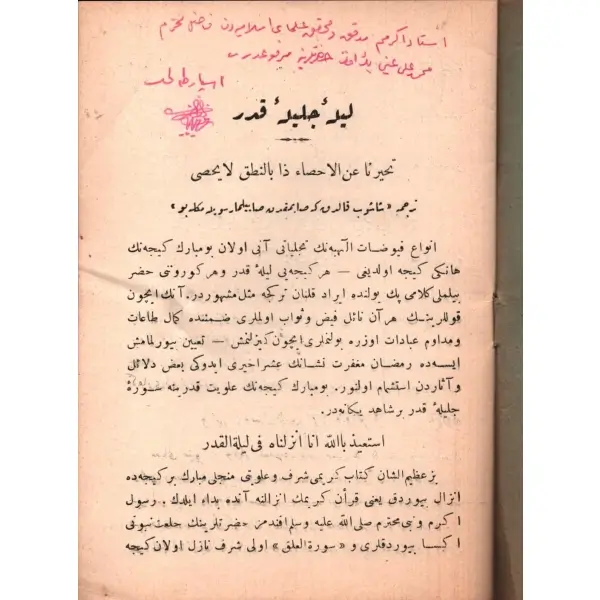 استاد اكرمم مدقق و محقق علمای اسلامیه‌دن فاضل محترم
محمد علی عینی بك افندی حضرتلرینه
لیلهٔ جلیلهٔ قدر
تحیرنا عن الاحصاء ذا بالنطق لایحصی
ترجمه «شاشوب قالدق كه صایمقدن صاییلماز سویلمكله بو»
انواع فیوضات الٓهیه‌نك تجلیاتی آنی اولان بومبارك كیجه‌نك
هانكی كیجه اولدیغی — هر كیجه‌یی لیلهٔ قدر وهر كوروننی حضر
بیلملی كلامی پك یولنده ایراد قلنان تركجه مثل مشهوردر. آنك ایچون
قوللرینك هرآن نائل فیض وثواب اولملری ضمننده كمال طاعات
ومداوم عبادات اوزره بولنملری ایچون كیزلنمش — تعیین بیورلمامش
ایسه‌ده رمضان مغفرت نشانك عشر اخیری ایدوكی بعض دلائل
و آثاردن استشمام اولنور. بومبارك كیجه‌نك علویت قدرینه سورهٔ
جلیلهٔ قدر بر شاهد یكانه‌در.
استعیذ بالله انا انزلناه فی لیلة القدر
بز عظیم الشان كتاب كریمی شرف و علوتی منجلی مبارك بر كیجه‌ده
انزال بیوردق یعنی قرأن كریمك انزالنه آنده بداء ایلدك. رسول
اكرم و نبی محترم صلی الله علیه وسلم افندمز حضرتلرینك خلعت نبوتی
اكسا بیوردقلری و «سورة العلق» اولی شرف نازل اولان كیجه